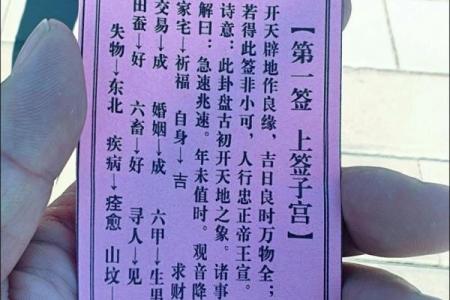 【第一签 上签子宫】
开天辟地作良缘,吉日良时万物全;
若得此签非小可,人行忠正帝王宣。
诗意:此卦盘古初开天地之象。诸事
解曰:急速兆速。年未值时。观音降
家宅→祈福 自身→吉 求财
交易→成 婚姻→成 六甲→生
田蚕→好 六畜→好 寻人→见
失物→东北 疾病→痊愈 山坟→